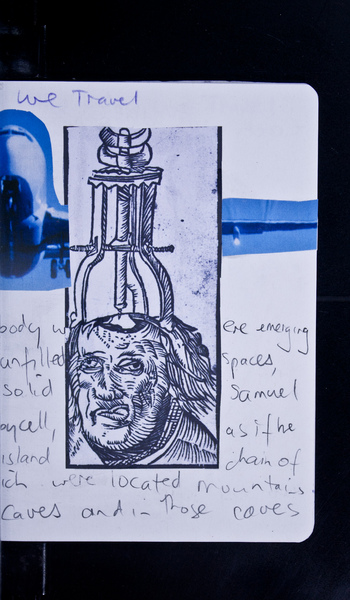 we Travel
body w ere emerging
unfilled spaces,
solid Samuel
oycell, as if he
island chain of
ich were located mountains.
caves and in those caves